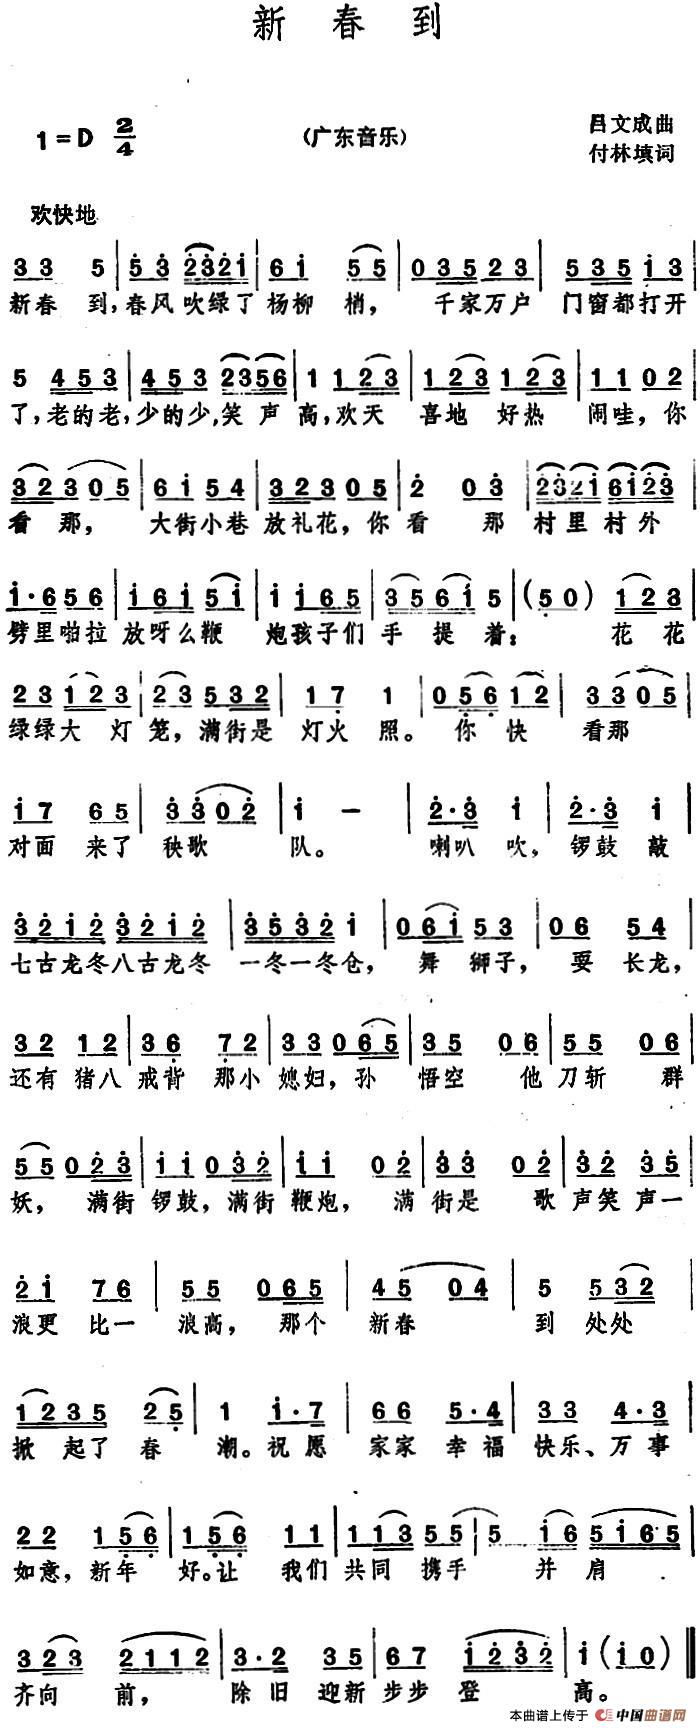 新春到
1=D 2/4
（广东音乐）
吕文成曲
付林填词
欢快地
新春到，春风吹绿了杨柳梢，千家万户门窗都打开
了，老的老，少的少，笑声高，欢天喜地好热闹哇，你
看那，大街小巷放礼花，你看那村里村外
劈里啪拉放呀么鞭炮孩子们手提着：花花
绿绿大灯笼，满街是灯火照。你快看那
对面来了秧歌队。喇叭吹，锣鼓敲
七古龙冬八古龙冬一冬一冬仓，舞狮子，耍长龙，
还有猪八戒背那小媳妇，孙悟空他刀斩群
妖，满街锣鼓，满街鞭炮，满街是歌声笑声一
浪更比一浪高，那个新春到处处
掀起了春潮。祝愿家家幸福快乐、万事
如意，新年好。让我们共同携手并肩
齐向前，除旧迎新步步登高。
本曲谱上传于 中国曲谱网